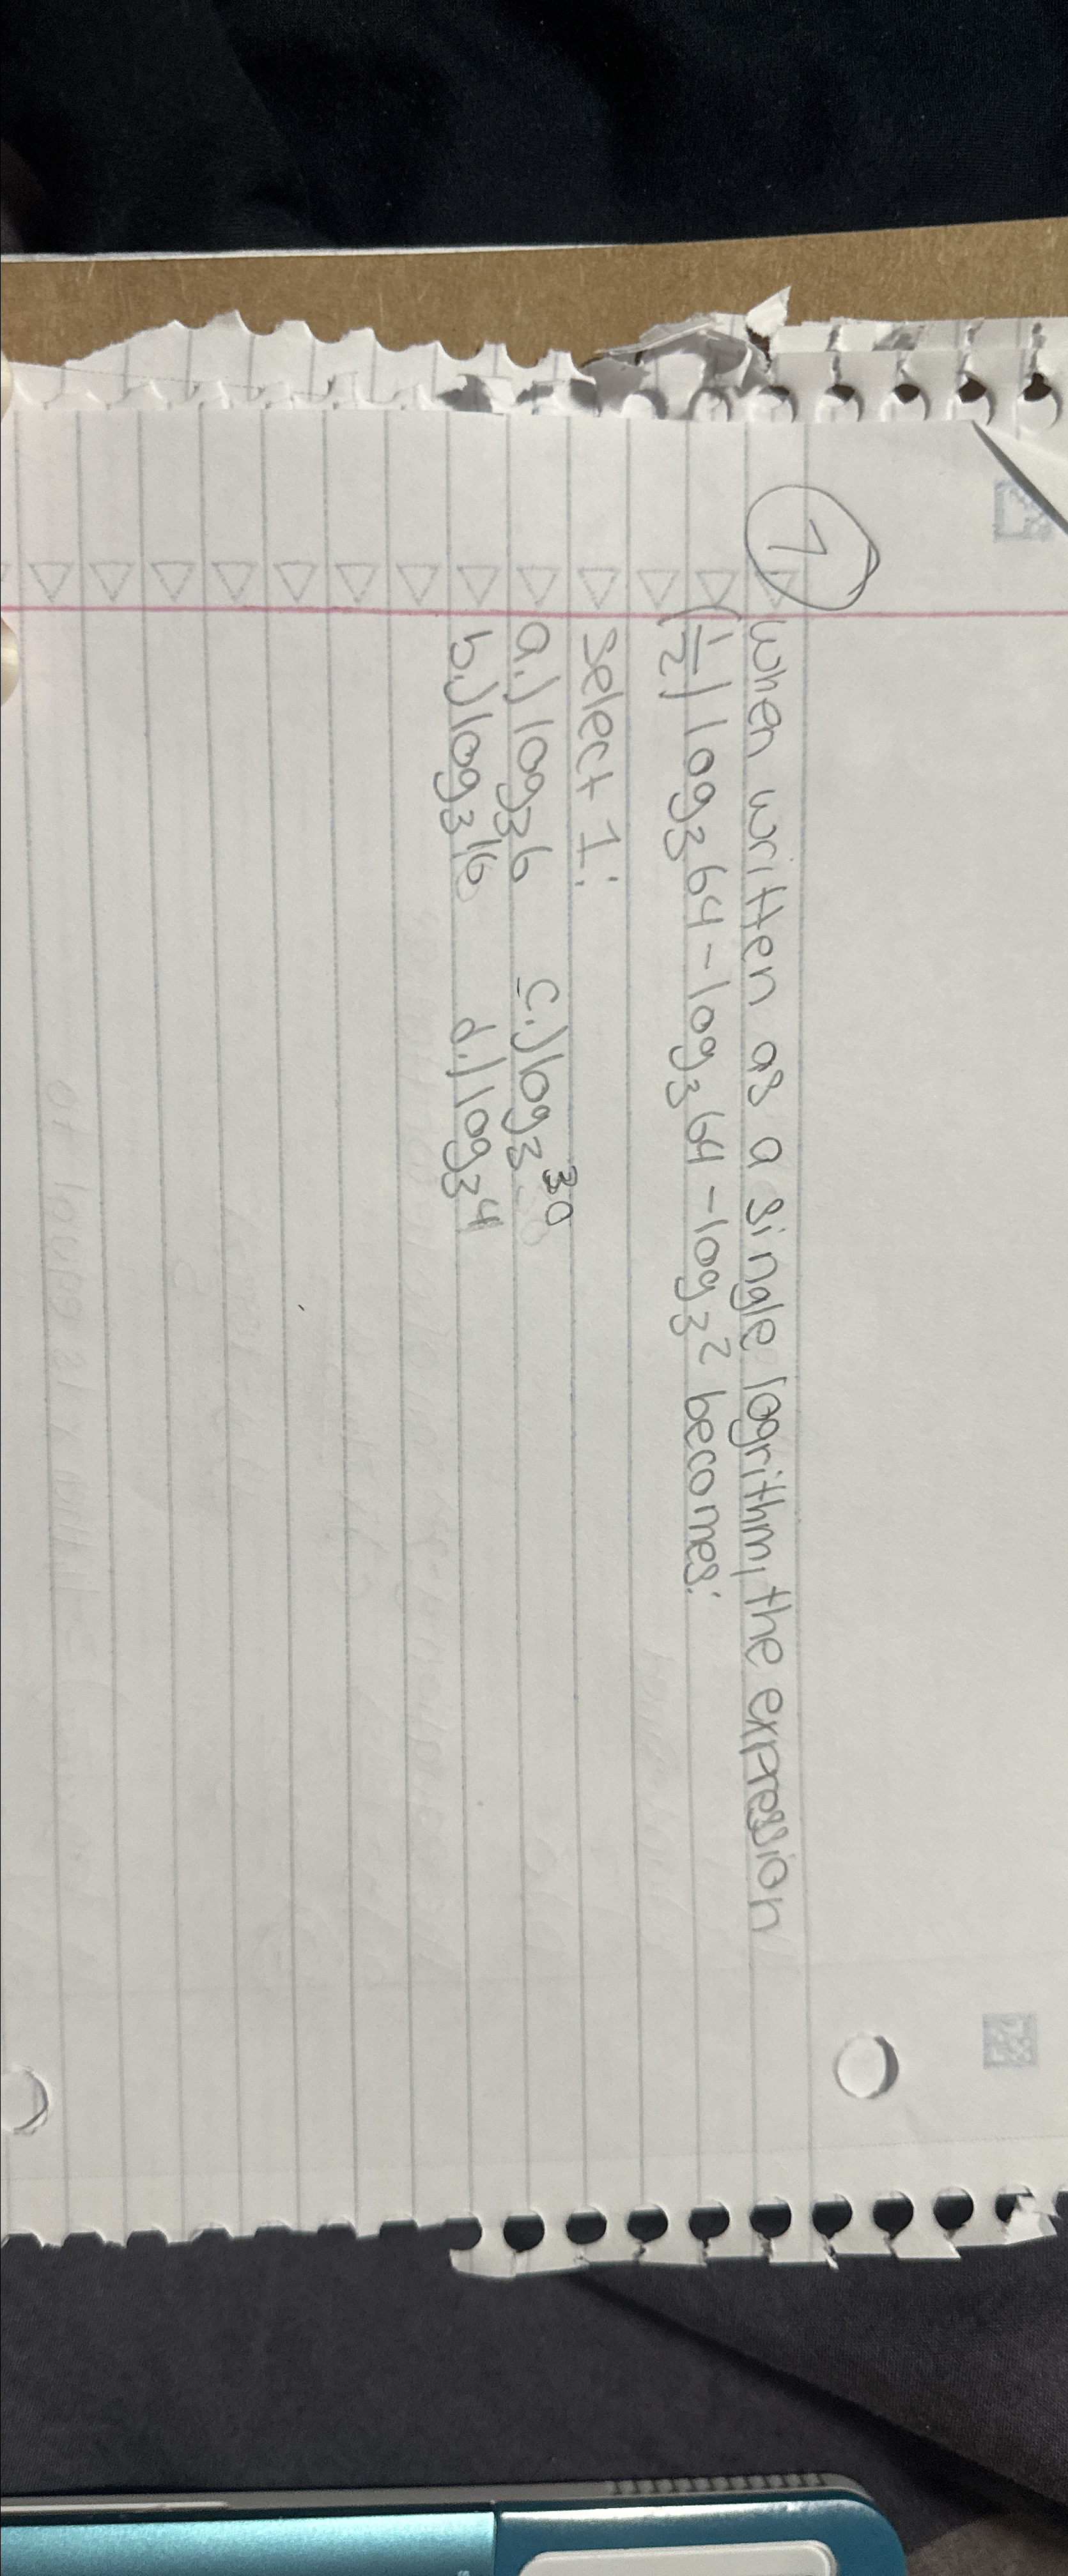 7 when written as a single logrithm, the expression
(1/2) log₃64 - log₃64 - log₃2 becomes:
Select 1:
a.) log₃6 c.) log₃30
b.) log₃16 d.) log₃4